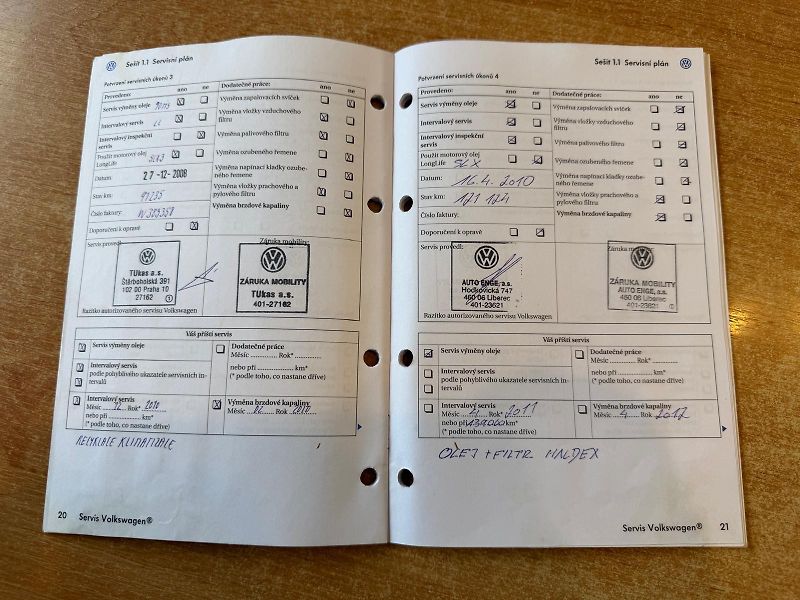 Sešit 1.1 Servisní plán
Potvrzení servisních úkonů 3
Provedeno:
ano
ne
Servis výměny oleje
Intervalový servis
Intervalový inspekční
servis
Použit motorový olej
LongLife
Datum:
27-12-2008
Stav km:
Číslo faktury:
Doporučení k opravě
Dodatečné práce:
ano
ne
Výměna zapalovacích svíček
Výměna vložky vzduchového
filtru
Výměna palivového filtru
Výměna ozubeného řemene
Výměna napínací kladky ozube-
ného řemene
Výměna vložky prachového a
pylového filtru
Výměna brzdové kapaliny
Servis provedl:
TUkas a.s.
Štěrboholská 391
102 00 Praha 10
27162
1
Razítko autorizovaného servisu Volkswagen
Záruka mobility:
ZÁRUKA MOBILITY
TUkas a.s.
401-27162
Váš příští servis
Servis výměny oleje
Intervalový servis
podle pohyblivého ukazatele servisních in-
tervalů
Intervalový servis
Měsíc 12 Rok* 2010
nebo při km*
(* podle toho, co nastane dříve)
Dodatečné práce
Měsíc Rok*
nebo při km*
(* podle toho, co nastane dříve)
Výměna brzdové kapaliny
Měsíc 12 Rok 2010
RECYKLACE KLIMATIZACE
20 Servis Volkswagen®
Sešit 1.1 Servisní plán
Potvrzení servisních úkonů 4
Provedeno:
ano
ne
Servis výměny oleje
Intervalový servis
Intervalový inspekční
servis
Použit motorový olej
LongLife SLX
Datum: 16.4.2010
Stav km: 121 174
Číslo faktury:
Doporučení k opravě
Dodatečné práce:
ano
ne
Výměna zapalovacích svíček
Výměna vložky vzduchového
filtru
Výměna palivového filtru
Výměna ozubeného řemene
Výměna napínací kladky ozube-
ného řemene
Výměna vložky prachového a
pylového filtru
Výměna brzdové kapaliny
Servis provedl:
AUTO ENGE, a.s.
Hodkovická 747
460 06 Liberec
401-23621
Razítko autorizovaného servisu Volkswagen
Záruka mobility:
ZÁRUKA MOBILITY
AUTO ENGE, a.s.
460 06 Liberec
401-23621
Váš příští servis
Servis výměny oleje
Intervalový servis
podle pohyblivého ukazatele servisních in-
tervalů
Intervalový servis
Měsíc Rok* 2011
nebo při km*
(* podle toho, co nastane dříve)
Dodatečné práce
Měsíc Rok*
nebo při km*
(* podle toho, co nastane dříve)
Výměna brzdové kapaliny
Měsíc 4 Rok 2012
OLEJ + FILTR HALDEX
Servis Volkswagen® 21